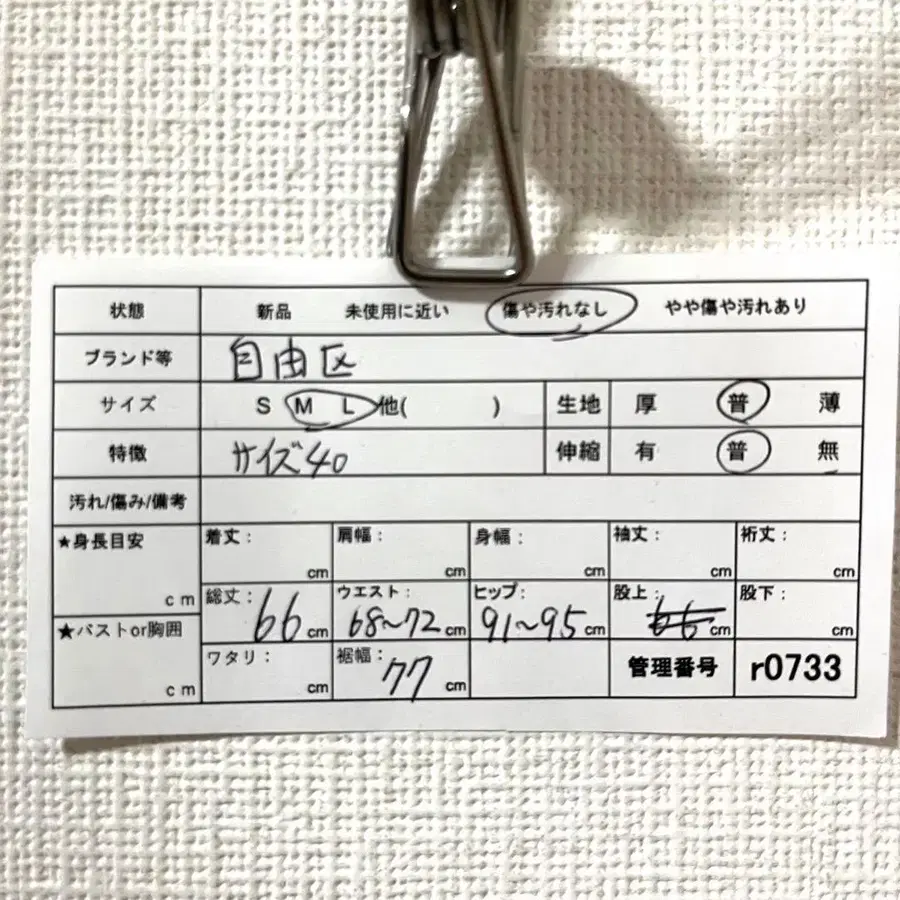 状態 新品 未使用に近い 傷や汚れなし やや傷や汚れあり
ブランド等 自由区
サイズ S M L 他( ) 生地 厚 普 薄
特徴 サイズ40 伸縮 有 普 無
汚れ/傷み/備考
★身長目安 cm 着丈: cm 肩幅: cm 身幅: cm 袖丈: cm 裄丈: cm
総丈: 66 cm ウエスト: 68~72 cm ヒップ: 91~95 cm 股上: 66 cm 股下: cm
★バストor胸囲 cm ワタリ: cm 裾幅: 77 cm 管理番号 r0733